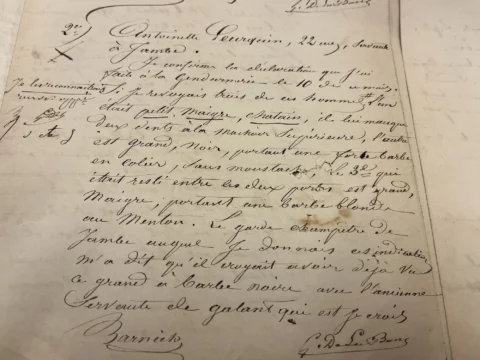 2e
Antoinette Leurquin, 22 ans, servante
à Jambe.
Je confirme la déclaration que j'ai
faite à la Gendarmerie le 10 de ce mois.
Je les reconnaitrais
si je revoyais trois de ces hommes. L'un
était petit, maigre, chatain, il lui manque
deux dents à la machoir supérieure, l'autre
est grand, noir, portant une forte barbe
en colier, sans moustache, le 3e qui
était resté entre les deux portes est grand,
maigre, portant une barbe blonde
au menton. Le garde champêtre de
Jambe auquel je donnais ces indications,
m'a dit qu'il croyait avoir déjà vu
ce grand à barbe noire avec l'ancienne
servante de galant qui est je crois
Barnich